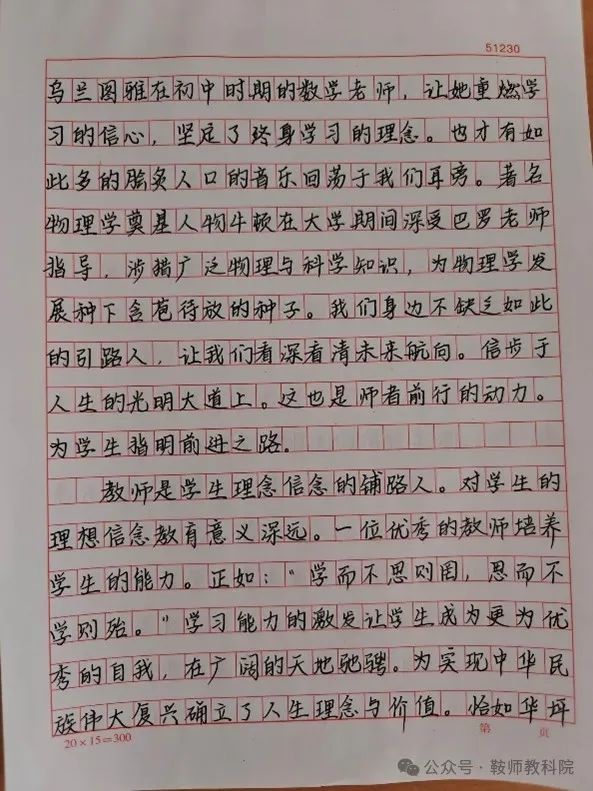 51230
乌兰图雅在初中时期的数学老师，让她重燃学
习的信心，坚定了终身学习的理念。也才有如
此多的脍炙人口的音乐回荡于我们耳旁。著名
物理学奠基人物牛顿在大学期间深受巴罗老师
指导，涉猎广泛物理与科学知识，为物理学发
展种下含苞待放的种子。我们身边不缺乏如此
的引路人，让我们看深看清未来航向。信步于
人生的光明大道上。这也是师者前行的动力。
为学生指明前进之路。
教师是学生理念信念的铺路人。对学生的
理想信念教育意义深远。一位优秀的教师培养
学生的能力。正如：“学而不思则罔，思而不
学则殆。”学习能力的激发让学生成为更为优
秀的自我，在广阔的天地驰骋。为实现中华民
族伟大复兴确立了人生理念与价值。恰如华坪
20×15=300
第 页
公众号·鞍师教科院